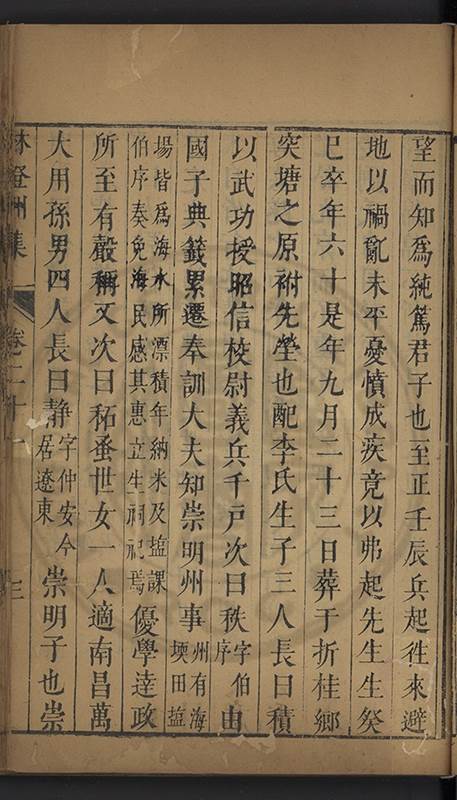 望而知為純篤君子也至正壬辰兵起徃來避
地以禍亂未平憂憤成疾竟以弗起先生生癸
巳卒年六十是年九月二十三日葬于折桂鄉
突塘之原祔先塋也配李氏生子三人長曰積
以武功授昭信校尉義兵千戸次曰秩字伯序由
國子典籤累遷奉訓大夫知崇明州事州有海堧田塩
塲皆爲海水所漂積年納米及塩課伯序奏免海民感其惠立生祠祀焉優學逹政
所至有聲稱文次曰秳蚤世女一人適南昌萬
大用孫男四人長曰靜字仲安今居遼東崇明子也崇
林登州集
卷二十一
三